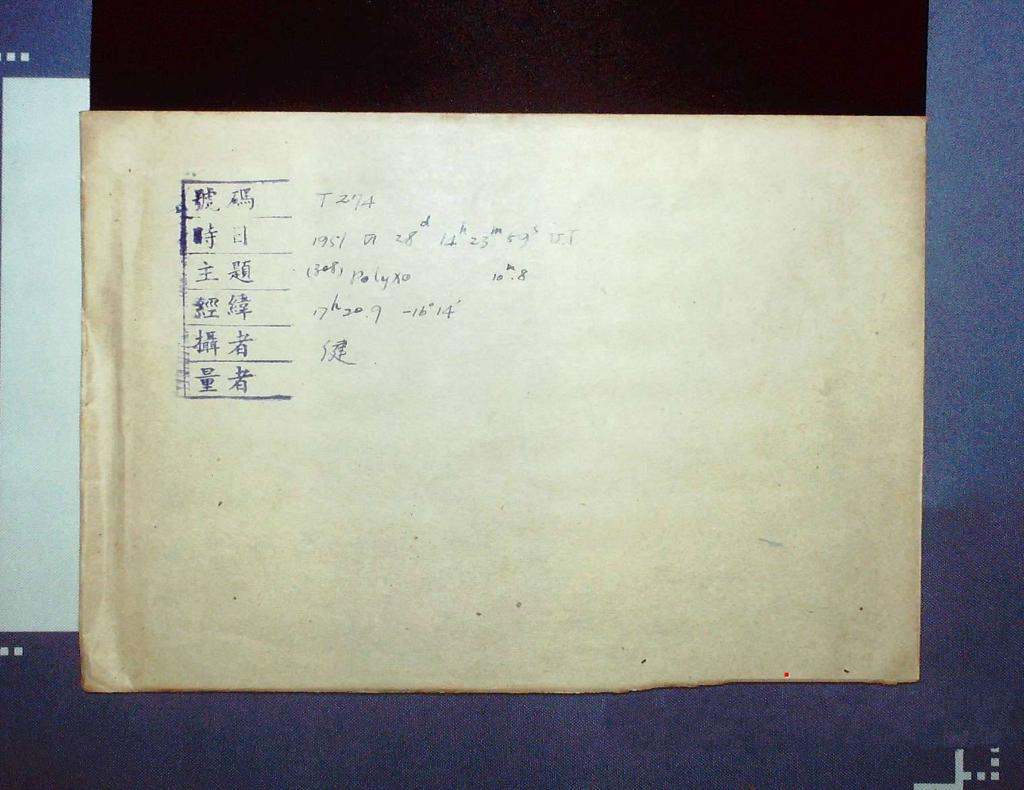 號碼 T 274
時日 1951 VI 28d 14h 23m 59s U.T
主題 (308) Polyxo 10m.8
經緯 17h 20.9 -16° 14'
攝者 健
量者